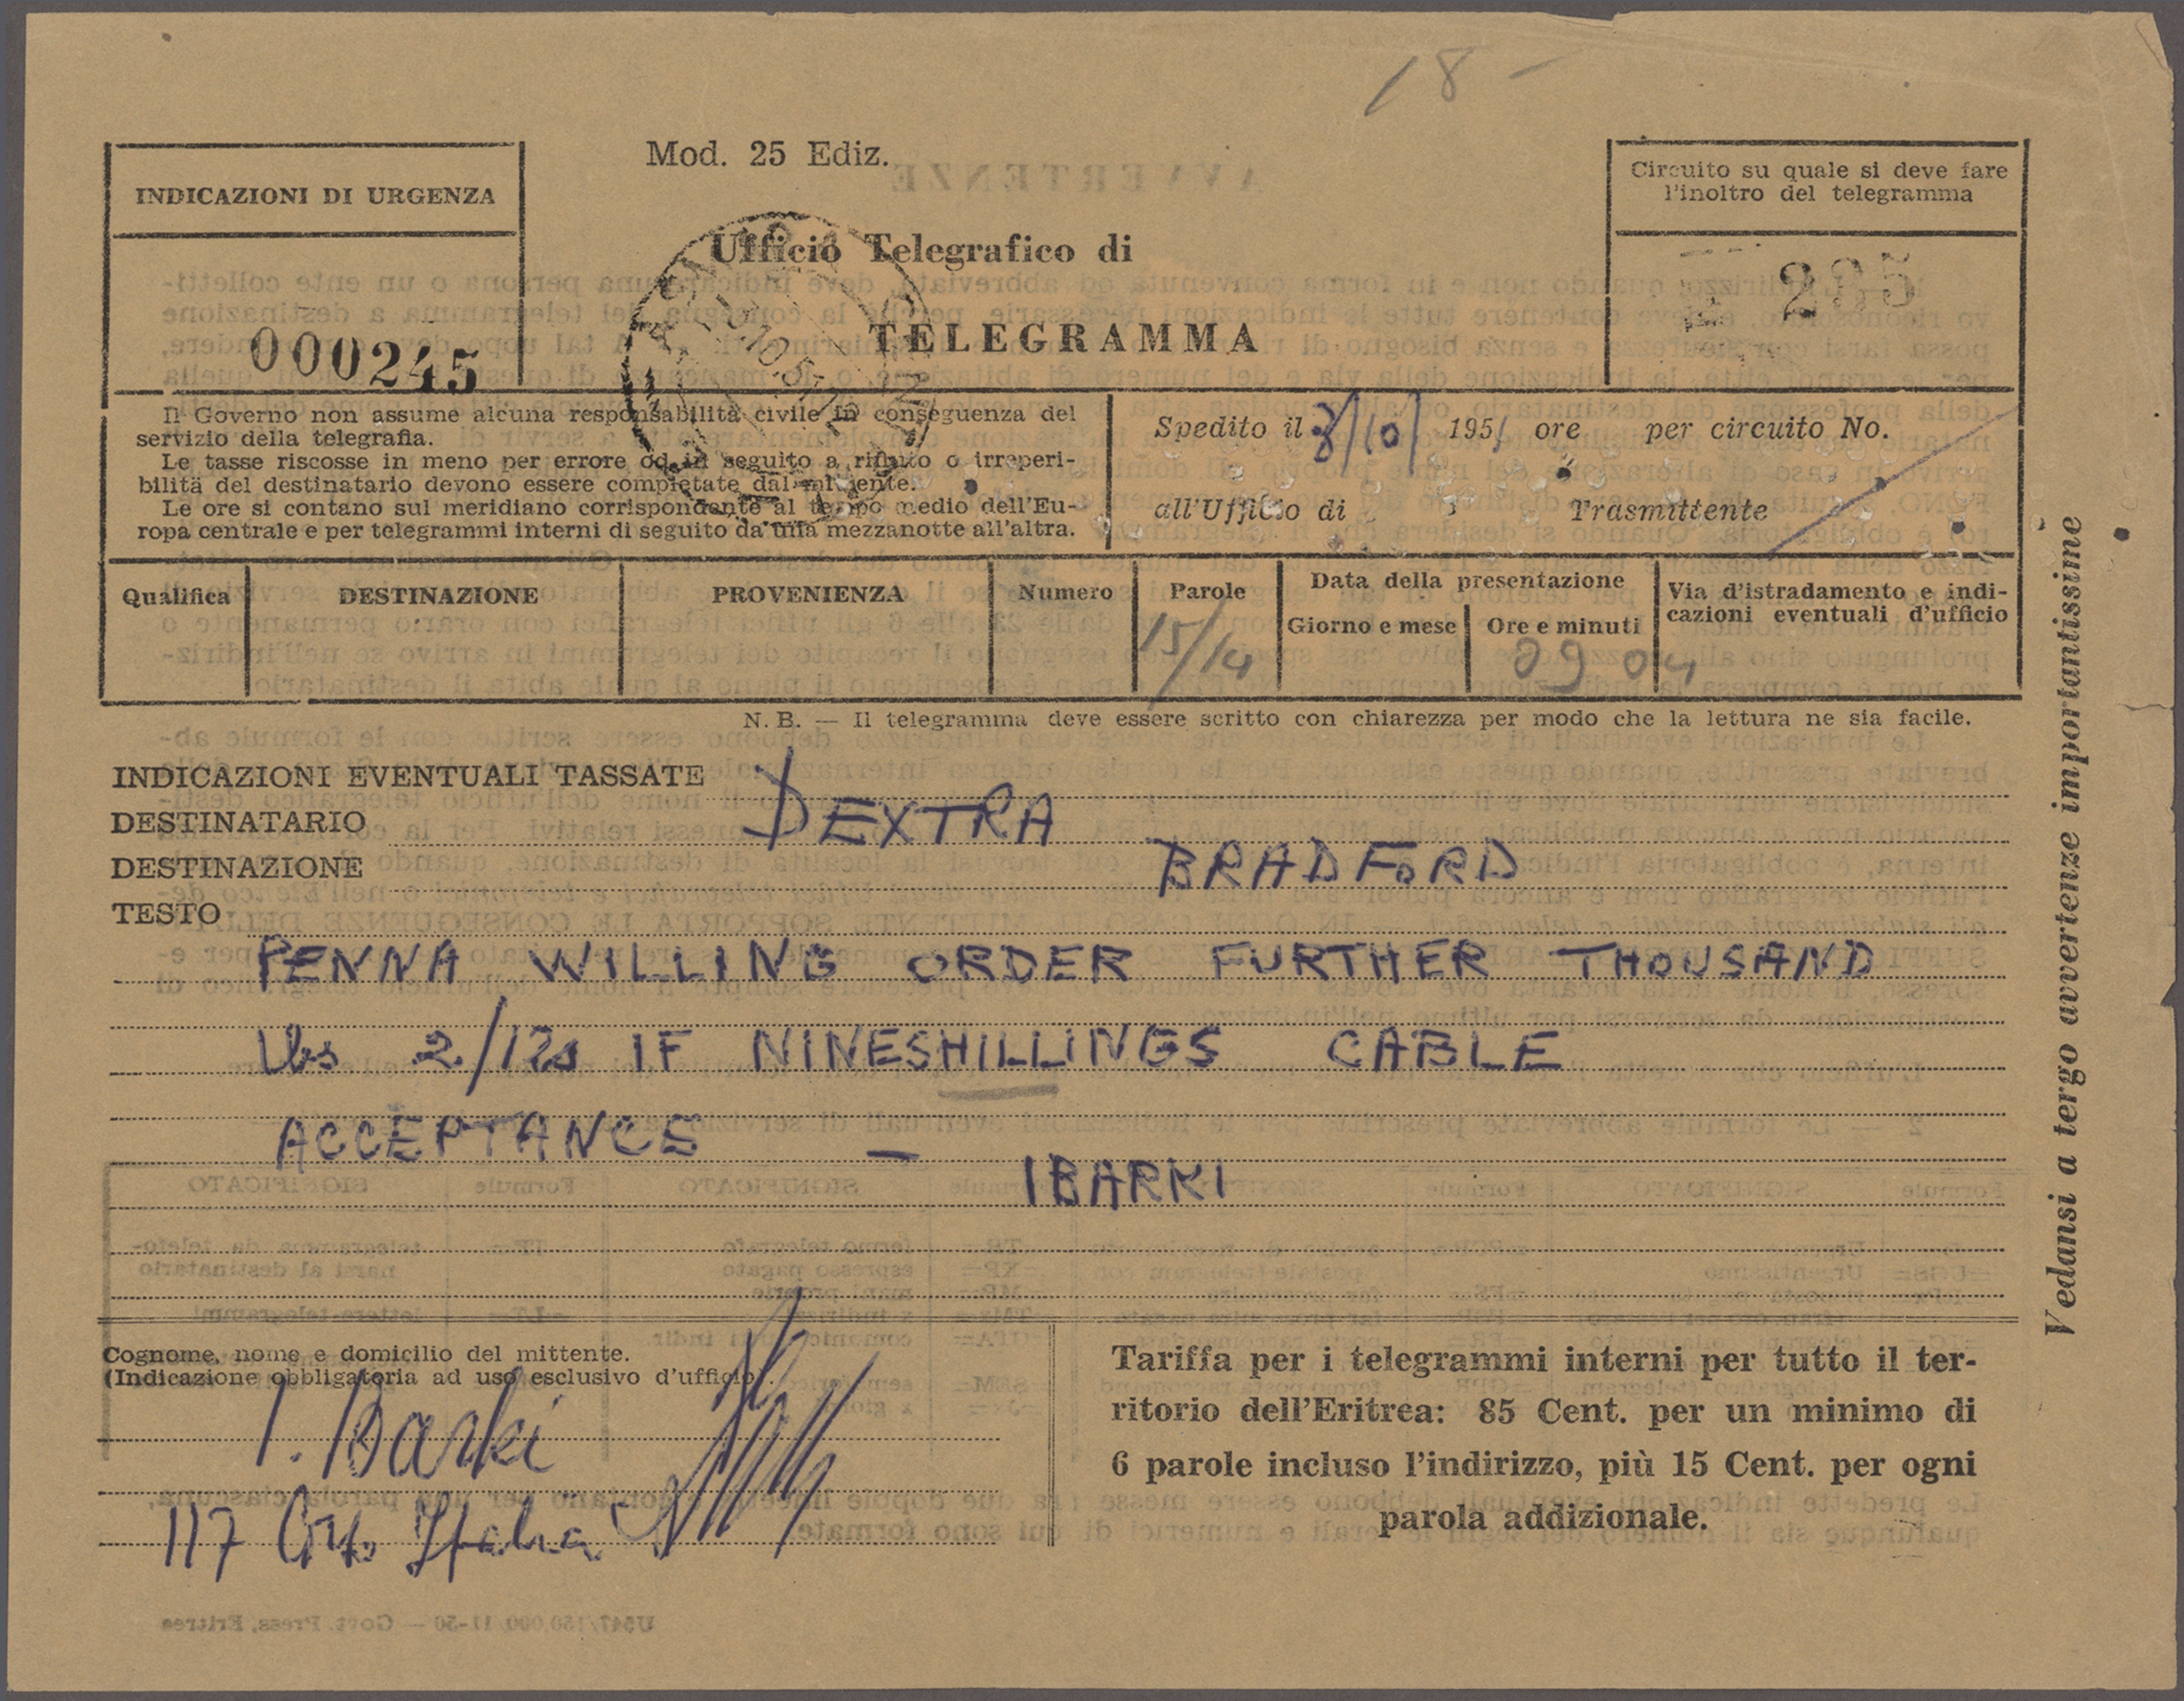 18 -
Mod. 25 Ediz.
INDICAZIONI DI URGENZA
000245
Ufficio Telegrafico di
TELEGRAMMA
Circuito su quale si deve fare
l'inoltro del telegramma
Il Governo non assume alcuna responsabilità civile in conseguenza del
servizio della telegrafia.
Le tasse riscosse in meno per errore od in seguito a rifiuto o irreperi-
bilità del destinatario devono essere completate dal mittente.
Le ore si contano sul meridiano corrispondente al tempo medio dell'Eu-
ropa centrale e per telegrammi interni di seguito da una mezzanotte all'altra.
Spedito il 8/10/ 1951 ore per circuito No.
all'Ufficio di Trasmittente
Qualifica DESTINAZIONE PROVENIENZA Numero Parole Data della presentazione Via d'istradamento e indi-
cazioni eventuali d'ufficio
Giorno e mese Ore e minuti
15/14 09 04
N. B. — Il telegramma deve essere scritto con chiarezza per modo che la lettura ne sia facile.
INDICAZIONI EVENTUALI TASSATE
DESTINATARIO DEXTRA
DESTINAZIONE BRADFORD
TESTO
PENNA WILLING ORDER FURTHER THOUSAND
lbs 2/12s IF NINESHILLINGS CABLE
ACCEPTANCE —
IBARKI
Cognome, nome e domicilio del mittente.
(Indicazione obbligatoria ad uso esclusivo d'ufficio).
I. Barki
117 Italia
Tariffa per i telegrammi interni per tutto il ter-
ritorio dell'Eritrea: 85 Cent. per un minimo di
6 parole incluso l'indirizzo, più 15 Cent. per ogni
parola addizionale.
Vedansi a tergo avvertenze importantissime